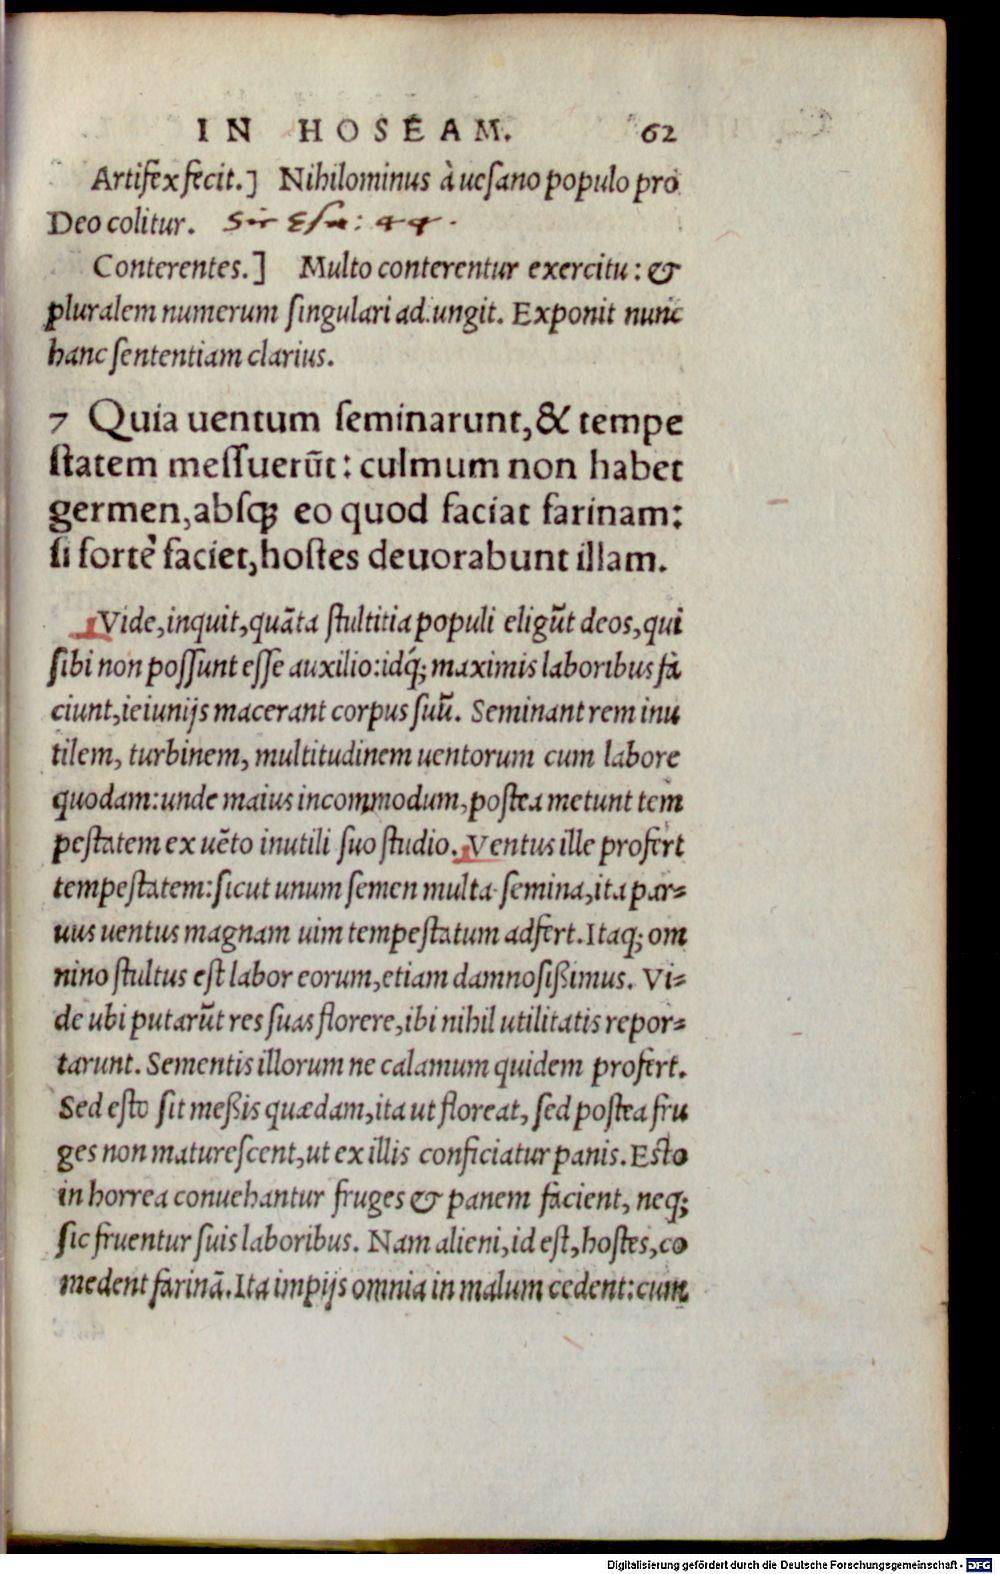 IN HOSEAM. 62
Artifex fecit.] Nihilominus à uesano populo pro
Deo colitur. Sir Esa: 44.
Conterentes.] Multo conterentur exercitu: &
pluralem numerum singulari ad.ungit. Exponit nunc
hanc sententiam clarius.
7 Quia uentum seminarunt, & tempe
statem messuerūt: culmum non habet
germen, absq; eo quod faciat farinam:
si fortè faciet, hostes deuorabunt illam.
Vide, inquit, quāta stultitia populi eligūt deos, qui
sibi non possunt esse auxilio: idq́; maximis laboribus fa
ciunt, ieiunijs macerant corpus suū. Seminant rem inu
tilem, turbinem, multitudinem uentorum cum labore
quodam: unde maius incommodum, postea metunt tem
pestatem ex uēto inutili suo studio. Ventus ille profert
tempestatem: sicut unum semen multa semina, ita par=
uus uentus magnam uim tempestatum adfert. Itaq; om
nino stultus est labor eorum, etiam damnosißimus. Vi=
de ubi putarūt res suas florere, ibi nihil utilitatis repor=
tarunt. Sementis illorum ne calamum quidem profert.
Sed esto sit meßis quædam, ita ut floreat, sed postea fru
ges non maturescent, ut ex illis conficiatur panis. Esto
in horrea conuehantur fruges & panem facient, neq;
sic fruentur suis laboribus. Nam alieni, id est, hostes, co
medent farinā. Ita impijs omnia in malum cedent: cum
Digitalisierung gefördert durch die Deutsche Forschungsgemeinschaft - DFG